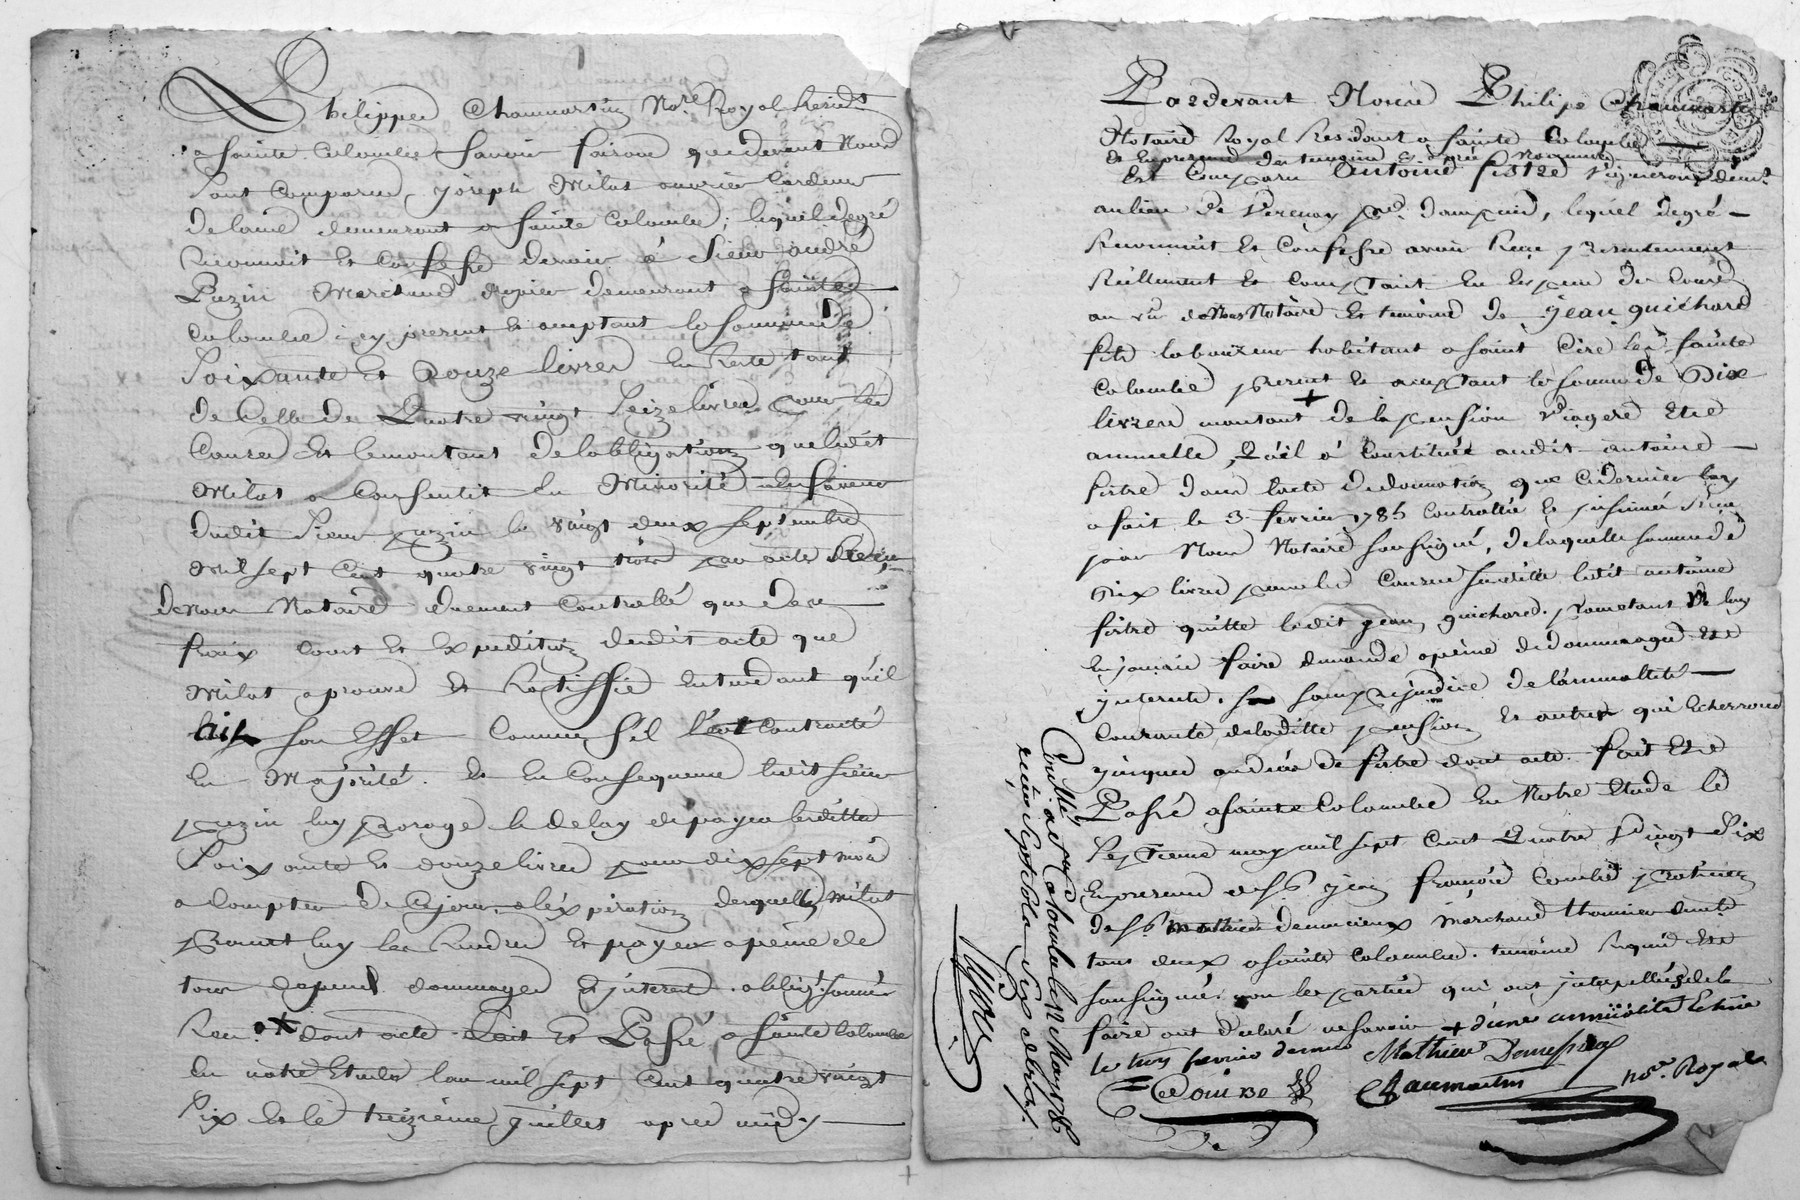 Philippe Chaumartin No.re Royal Resid.t
a Sainte Colombe Savoir faisons que devant Nous
Sont Comparu joseph Milat ouvrier Cardeur
de laine demeurant a Sainte Colombe, lequel de gré
Reconnoit et Confesse devoir a Sieur andré
Puzin Marchand demeurant a Sainte
Colombe icy present et acceptant la somme de
Soixante et Douze livres En Reste tant
de Celle de Quatre vingt Seize livres pour les
Causes et le montant de lobligation que ledit
Milat a Consentit En Minorité En faveur
dudit Sieur puzin le vingt deux septembre
mil sept Cent quatre vingt trois par acte Reçu
de nous Notaire duement Controllé que de ce
fraix Cout et Expedition dudit acte que
Milat aprouve et Rattiffie Entendant qu'il
aist son Effet Comme s'il l'eut Contracté
En Majorité. et En Consequence ledit sieur
puzin luy proroge le delay de payer lesdittes
Soixante et douze livres pour dix sept mois
a Compter de Cejour, a l'expiration desquels Milat
promet luy les Rendre et payer a peine de
tous depens dommages et interest. oblig. soumis
Ren.on dont acte. Fait et Passé a Sainte Colombe
En notre Etude lan mil sept Cent quatre vingt
Six et le treizieme juillet apres midy
Pardevant Nous Philipe Chaumartin
Notaire Royal Residant a Sainte Colombe
et En presence des temoins cy apres Nommés
Est Comparu Antoine fistre vigneron dem.t
au lieu de Verenay p.sse dampuis, lequel de gré
Reconnoit et Confesse avoir Reçu presentement
Reellement et Comptant En Especes de Cours
au vû de Nous Notaire et temoins de jean guichard
fils laboureur habitant a saint Cire les sainte
Colombe present et acceptant la somme de Dix
livres montant de la pension viagere Et
annuelle, Qu'il a Constitué audit antoine
fistre dans lacte de donation que Ce dernier luy
a fait le 3. fevrier 1785 Controllé et insinué Reçu
par Nous Notaire soussigné, de laquelle somme de
Dix livres pour les Causes susdittes ledit antoine
fistre quitte ledit jean guichard, prometant Ne luy
En jamais faire demande a peine de dommages Et
interests. sans prejudice de l'annuallité
Courante de laditte pension et autres qui Echerront
jusques au deces de fistre dont acte. fait Et
Passé a sainte Colombe En Notre Etude le
Septieme may mil sept Cent Quatre Vingt Six
En presence de S.r jean françois Combe praticien
et de S.r mathieu marchand
tous deux a sainte Colombe. temoins Requis Et
soussignés. non les parties qui ont interpellées de le
faire ont declaré ne savoir + d'une annuallité Echue
le trois fevrier dernier Mathieu
Combe Chaumartin no.re Royal
Con.llé a S.te Colombe le 12 May 1786
reçu Sept Sols Six deniers.